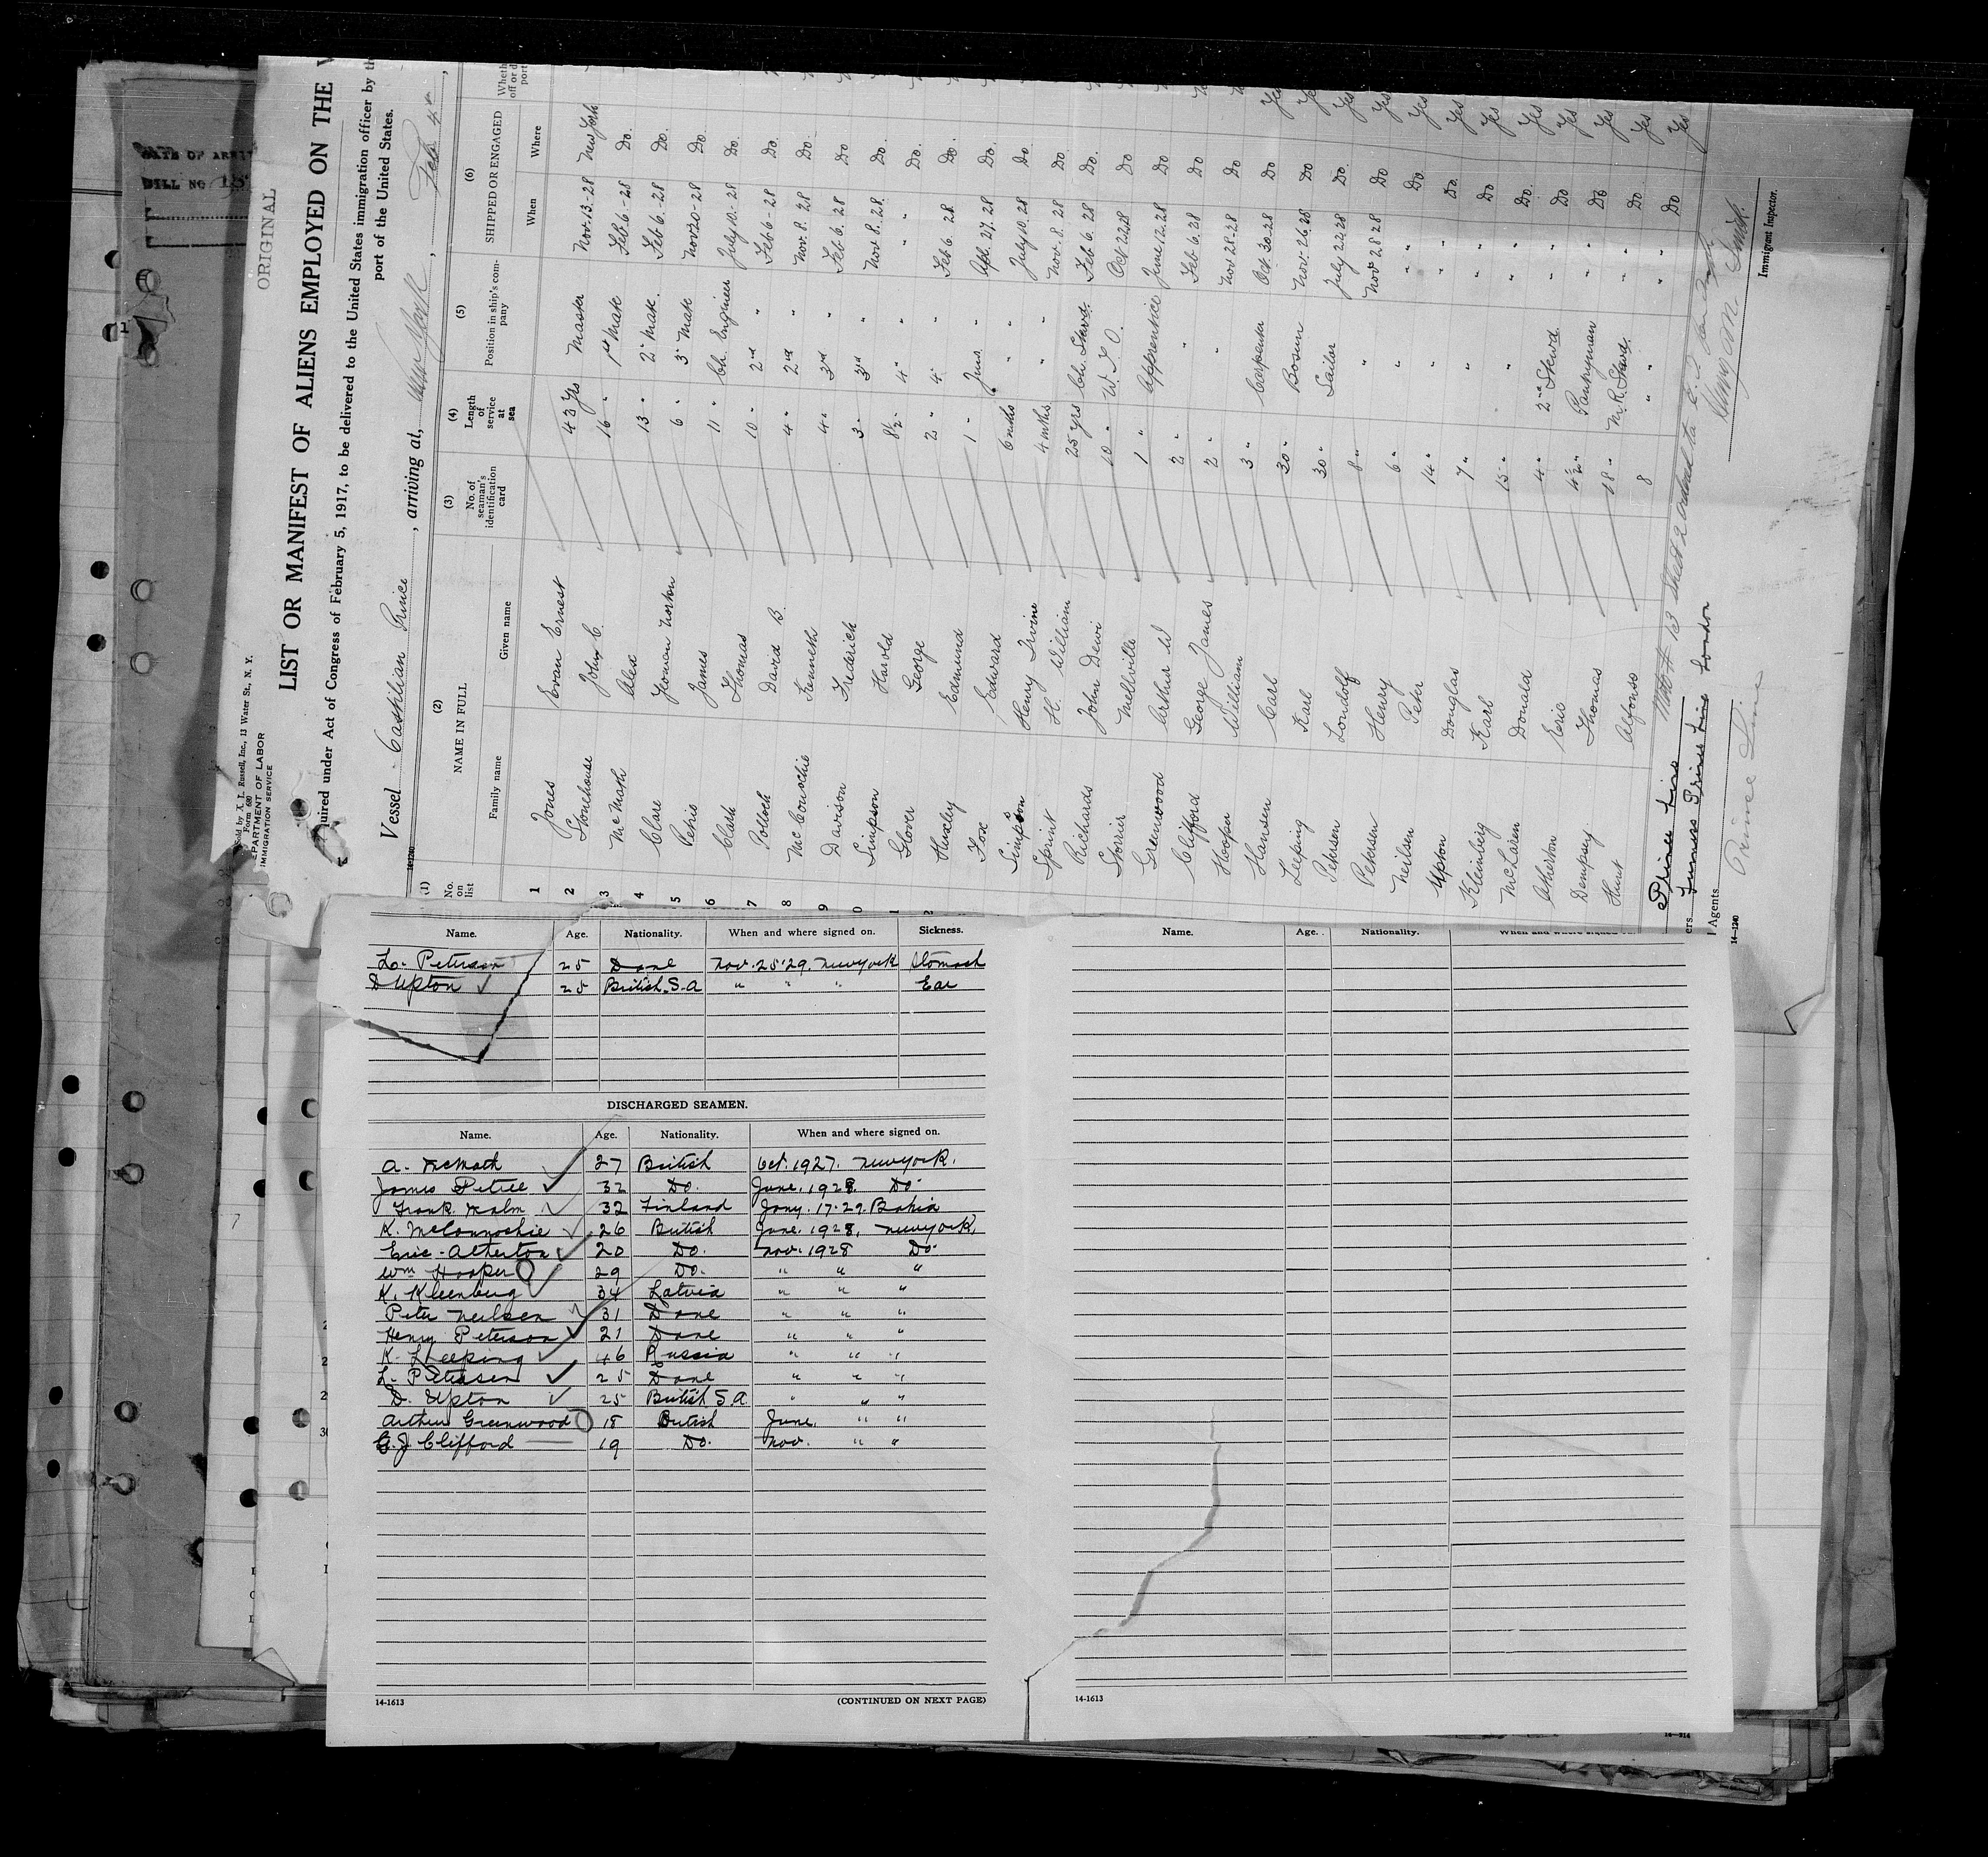 DATE OF ARRI
BILL NO. 15
ORIGINAL
Sold by A. L. Russell, Inc., 13 Water St., N. Y.
Form 680
DEPARTMENT OF LABOR
IMMIGRATION SERVICE
LIST OR MANIFEST OF ALIENS EMPLOYED ON THE V
quired under Act of Congress of February 5, 1917, to be delivered to the United States immigration officer by th
port of the United States.
Vessel Castilian Prince, arriving at, New York, Feb 4
14-1240
(1) (2) (3) (4) (5) (6)
No. on list NAME IN FULL No. of seaman's identification card Length of service at sea Position in ship's company SHIPPED OR ENGAGED Wheth
Family name Given name When Where off or d port
1 Jones Evan Ernest 43 yrs Master Nov. 13-28 New York
2 Stonehouse John C. 16 " 1st Mate Feb. 6-28 Do.
3 McMath Alex 13 " 2" Mate. Feb 6-28 Do.
4 Clare Yeoman Norton 6 " 3" Mate Nov 20-28 Do
5 Petrie James 11 " Ch. Engineer July 10-28 Do.
6 Clark Thomas 10 " 2nd " Feb 6-28 Do.
7 Pollock David B. 4 " 2nd " Nov. 8. 28 Do.
8 McConochie Kenneth 4 " 3rd " Feb 6. 28 Do
9 Davison Frederick 3 " 3rd " Nov 8. 28. Do.
0 Simpson Harold 8½ " 4" " " Do.
1 Glover George 2 " 4" " Feb 6. 28 Do.
2 Huxley Edmund 1 " Junr. " Apl. 27. 28 Do.
Fox Edward 6 mths " " July 10. 28 Do
Simpson Henry Irvine 4 mths " " Nov. 8. 28 Do.
Sprint H. William 25 yrs Ch. Stwd. Feb 6. 28 Do.
Richards John Dewi 10 " W. T. O. Oct 22 28 Do
Storrir Mellville 1 " Apprentice June 12. 28 Do
Greenwood Arthur W 2 " " Feb 6. 28 Do
Clifford George James 2 " " Nov 28-28 Do
Hooper William 3 " Carpenter Oct. 30-28 Do Yes
Hansen Carl 30 " Bosun Nov. 26. 28 Do Yes
Leeping Karl 30 " Sailor July 22. 28 Do. Yes
Petersen Londolf 8 " " Nov 28 28 Do Yes
Petersen Henry 6 " " " Do. Yes
Neilsen Peter 14 " " " Do. Yes
Upton Douglas 7 " " " Do Yes
Kleinberg Karl 15 " " " Do. Yes
McLaren Donald 4 " 2" Stewd. " Do Yes
Atherton Eric 4½ " Pantryman " Do Yes
Dempsey Thomas 18 " M. R. Stwd. " Do Yes
Hunt Alfonso 8 " " Do Yes
Prince Line
ers Furness Prince Line London
Agents Prince Line
14-1240
Immigrant Inspector.
Name. Age. Nationality. When and where signed on. Sickness.
L. Peterson 25 Dane Nov. 25 '29. New York Stomach
D Upton 25 British. S. A " " " Ear
DISCHARGED SEAMEN.
Name. Age. Nationality. When and where signed on.
A. McMath 27 British Oct. 1927. New York.
James Petrie 32 Do. June. 1928. Do.
Frank Malm 32 Finland Jany. 17. 29. Bahia
K. McConnochie 26 British June. 1928. New York.
Eric Atherton 20 Do. Nov. 1928 Do.
Wm Hooper 29 Do. " " "
K. Kleenberg 34 Latvia " " "
Peter Neilsen 31 Dane " " "
Henry Peterson 21 Dane " " "
K. Leeping 46 Russia " " "
L. Petersen 25 Dane " " "
D. Upton 25 British S. A. " " "
Arthur Greenwood 18 British June. " "
G. J. Clifford 19 Do. Nov. " "
14-1613 (CONTINUED ON NEXT PAGE)
Name. Age. Nationality. When and where signed on.
14-1613
14-914